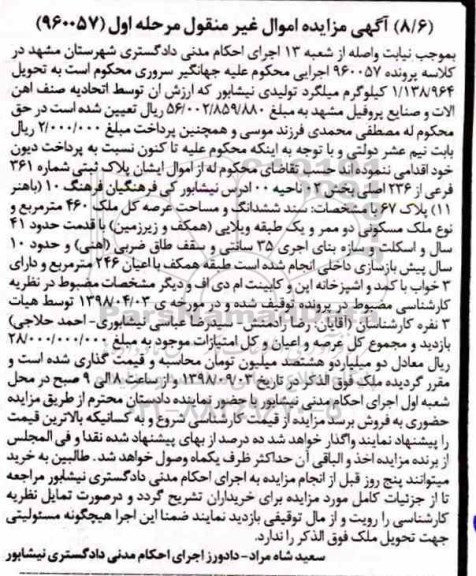 (۸/۶) آگهی مزایده اموال غیر منقول مرحله اول (۹۶۰۰۵۷)
بموجب نیابت واصله از شعبه ۱۳ اجرای احکام مدنی دادگستری شهرستان مشهد در
کلاسه پرونده ۹۶۰۰۵۷ اجرایی محکوم علیه جهانگیر سروری محکوم است به تحویل
۱/۱۳۸/۹۶۴ کیلوگرم میلگرد تولیدی نیشابور که ارزش ان توسط اتحادیه صنف اهن
الات و صنایع پروفیل مشهد به مبلغ ۵۶/۰۰۲/۸۵۹/۸۸۰ ریال تعیین شده است در حق
محکوم له مصطفی محمدی فرزند موسی و همچنین پرداخت مبلغ ۲/۰۰۰/۰۰۰ ریال
بابت نیم عشر دولتی و با توجه به اینکه محکوم علیه تا کنون نسبت به پرداخت دیون
خود اقدامی ننموده اند حسب تقاضای محکوم له از اموال ایشان پلاک ثبتی شماره ۳۶۱
فرعی از ۲۳۶ اصلی بخش ۰۲ ناحیه ۰۰ ادرس نیشابور کی فرهنگیان فرهنگ ۱۰ (باهنر
۱۱) پلاک ۶۷ با مشخصات: سند ششدانگ و مساحت عرصه کل ملک ۴۶۰ مترمربع و
نوع ملک مسکونی دو ممر و یک طبقه ویلایی (همکف و زیرزمین) با قدمت حدود ۴۱
سال و اسکلت و سازه بنای اجری ۳۵ سانتی و سقف طاق ضربی (اهنی) و حدود ۱۰
سال پیش بازسازی داخلی انجام شده است طبقه همکف با اعیان ۲۴۶ مترمربع و دارای
۳ خواب با کمد و اشپزخانه اپن و کابینت ام دی اف و دیگر مشخصات مضبوط در نظریه
کارشناسی مضبوط در پرونده توقیف شده و در مورخه ی ۱۳۹۸/۰۴/۰۳ توسط هیات
۳ نفره کارشناسان (آقایان: رضا رادمنش- سیدرضا عباسی نیشابوری- احمد حلاجی)
بازدید و مجموع کل عرصه و اعیان و کل امتیازات موجود به مبلغ ۲۸/۰۰۰/۰۰۰/۰۰۰
ریال معادل دو میلیارد و هشتصد میلیون تومان محاسبه و قیمت گذاری شده است و
مقرر گردیده ملک فوق الذکر در تاریخ ۱۳۹۸/۰۹/۰۳ و از ساعت ۸ الی ۹ صبح در محل
شعبه اول اجرای احکام مدنی نیشابور با حضور نماینده دادستان محترم از طریق مزایده
حضوری به فروش برسد مزایده از قیمت کارشناسی شروع و به کسانیکه بالاترین قیمت
را پیشنهاد نمایند واگذار خواهد شد ده درصد از بهای پیشنهاد شده نقدا و فی المجلس
از برنده مزایده اخذ و الباقی آن حداکثر ظرف یکماه وصول خواهد شد. طالبین به خرید
میتوانند پنج روز قبل از انجام مزایده به اجرای احکام مدنی دادگستری نیشابور مراجعه
تا از جزئیات کامل مورد مزایده برای خریداران تشریح گردد و درصورت تمایل نظریه
کارشناسی را رویت و از مال توقیفی بازدید نمایند ضمنا این اجرا هیچگونه مسئولیتی
جهت تحویل ملک فوق الذکر را ندارد.
سعید شاه مراد- دادورز اجرای احکام مدنی دادگستری نیشابور